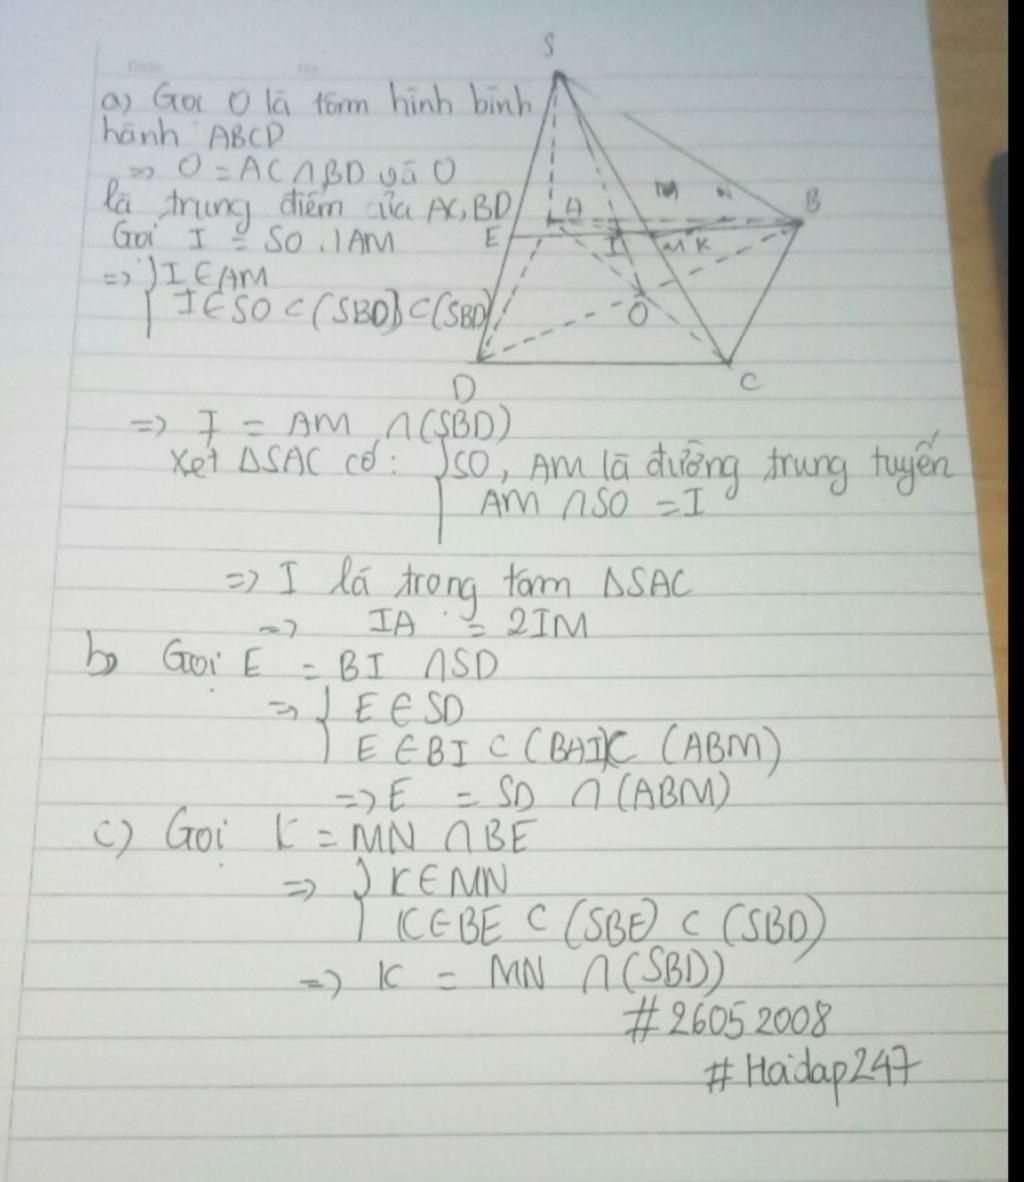 S
a) Gọi O là tâm hình bình
hành ABCD
=> O = AC ∩ BD và O
là trung điểm của AC, BD
Gọi I = SO ∩ AM
=> { I ∈ AM
I ∈ SO ⊂ (SBD) ⊂ (SBD)
A
M
N
B
E
I
M K
O
D
C
=> I = AM ∩ (SBD)
Xét ΔSAC có: { SO, AM là đường trung tuyến
AM ∩ SO = I
=> I là trọng tâm ΔSAC
=> IA = 2IM
b) Gọi E = BI ∩ SD
=> { E ∈ SD
E ∈ BI ⊂ (BAI) ⊂ (ABM)
=> E = SD ∩ (ABM)
c) Gọi K = MN ∩ BE
=> { K ∈ MN
K ∈ BE ⊂ (SBE) ⊂ (SBD)
=> K = MN ∩ (SBD)
# 26052008
# Hoidap247